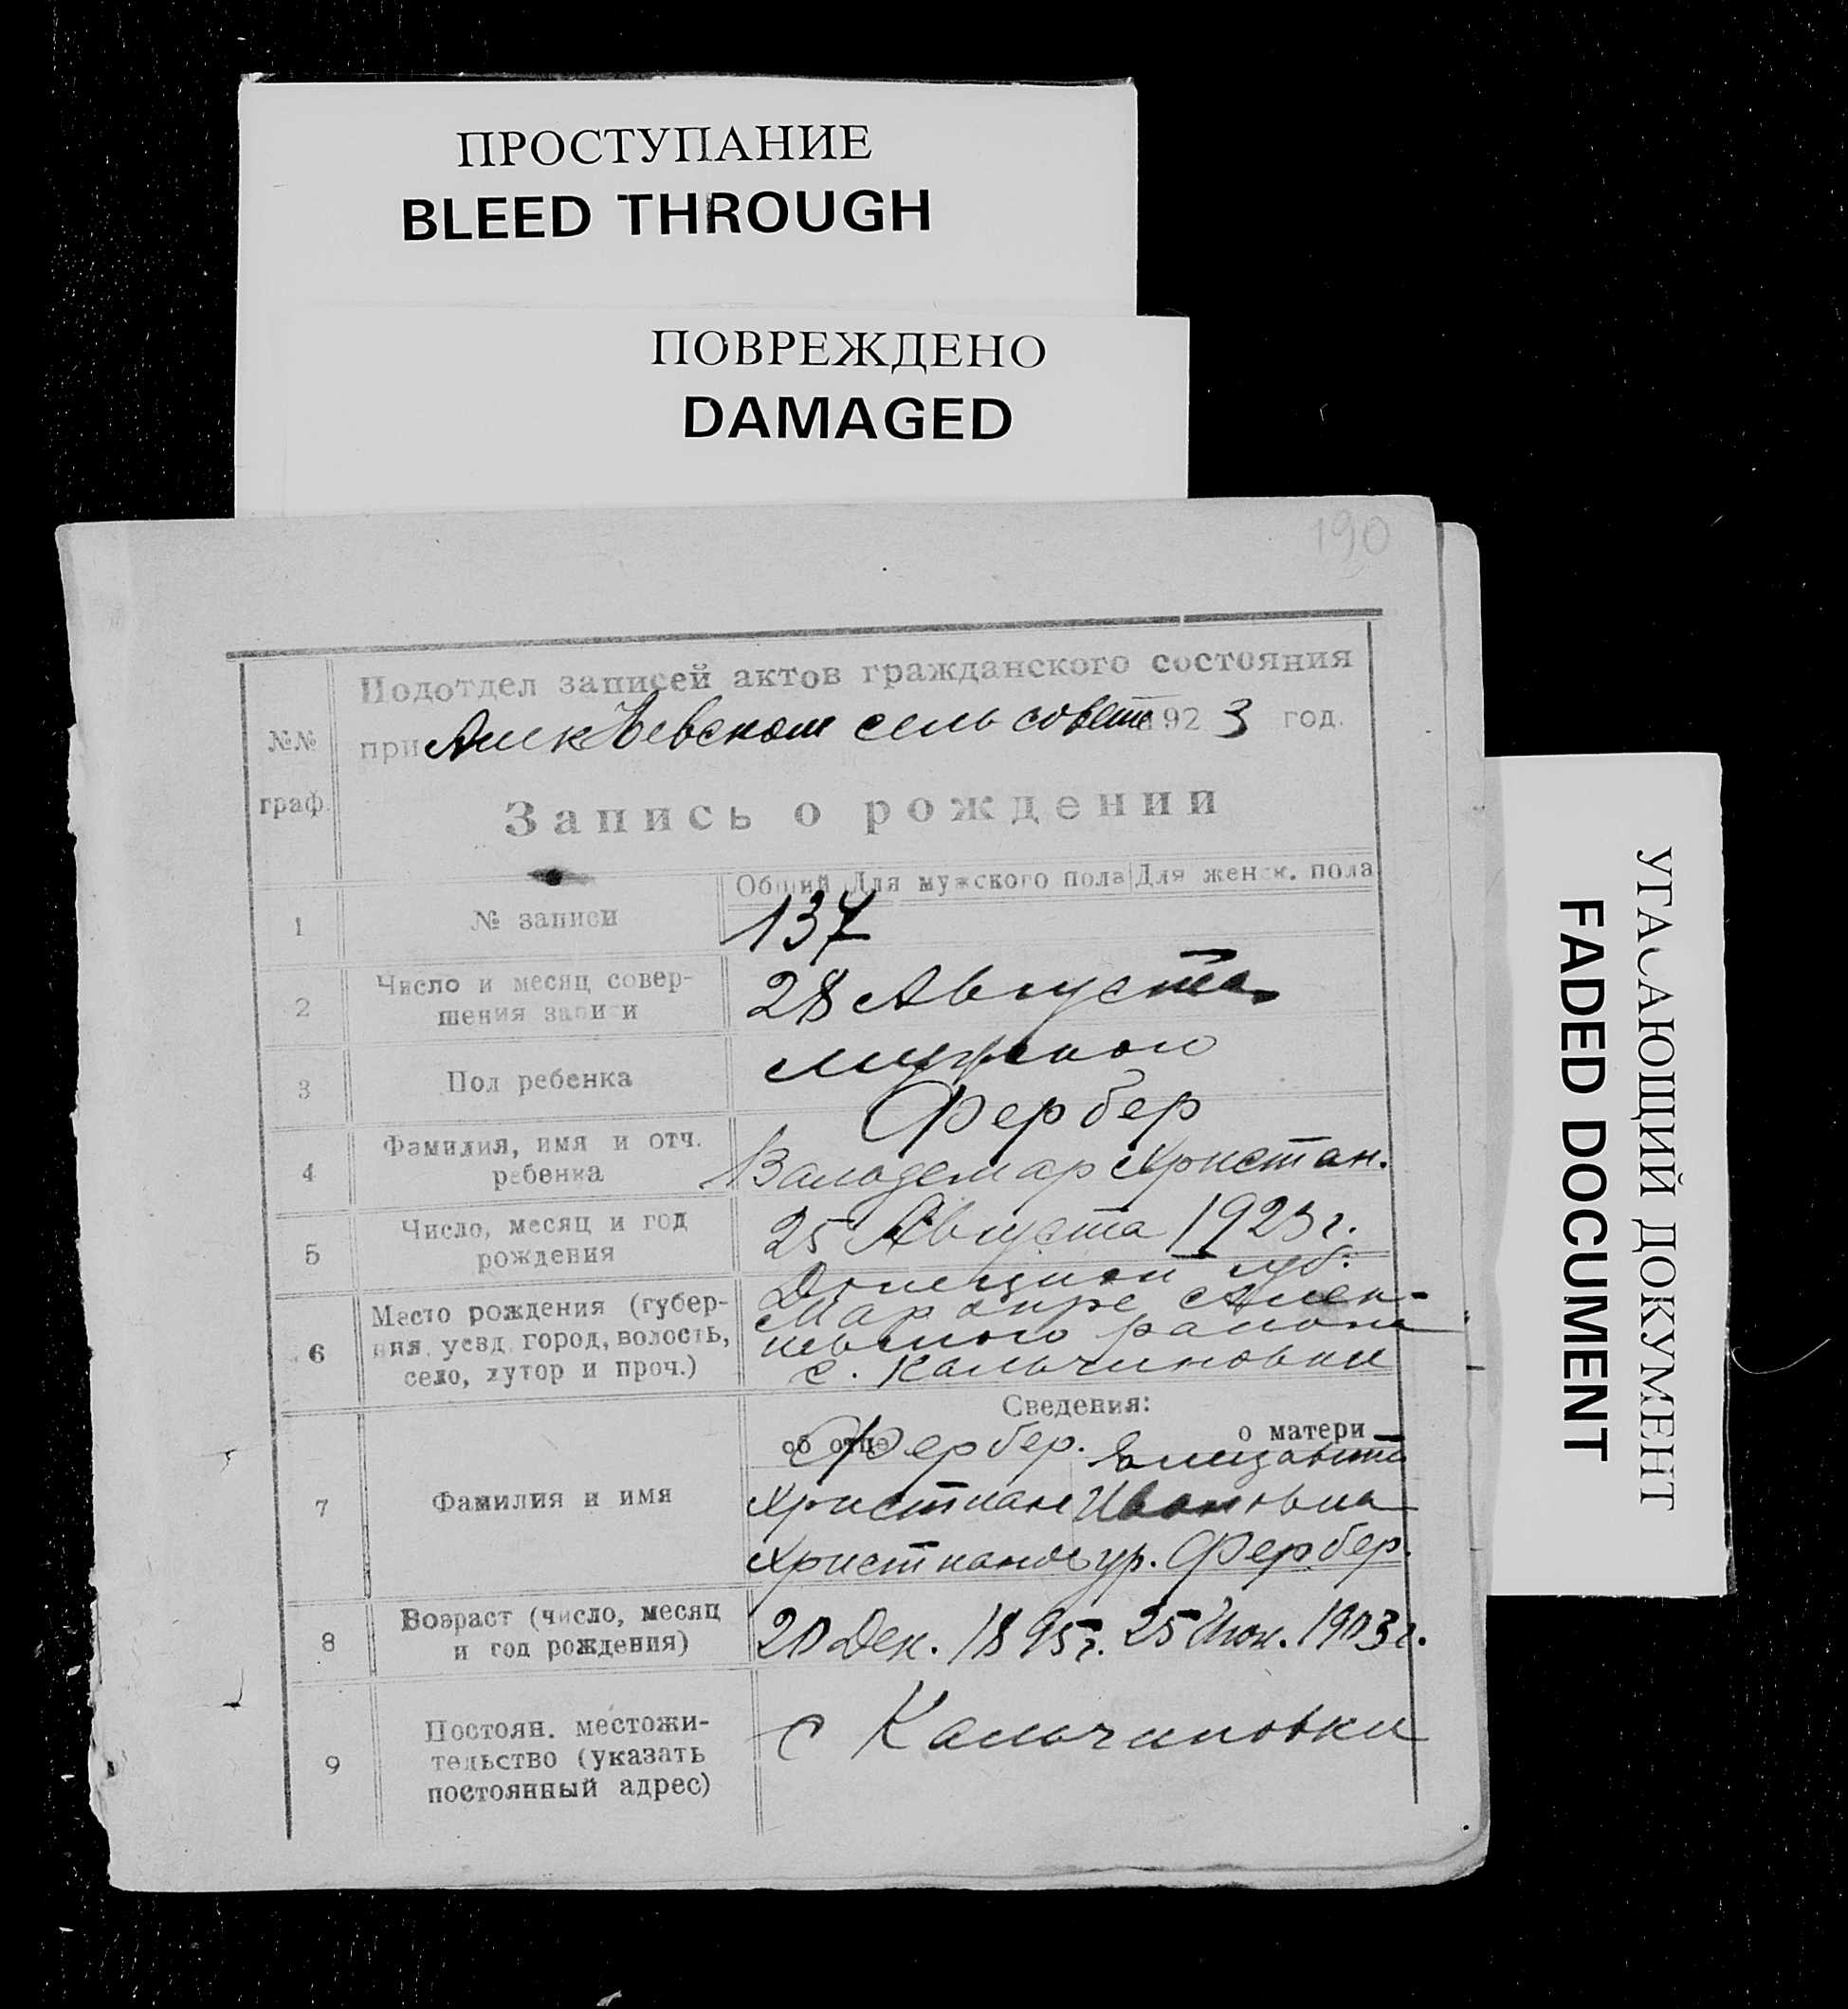 ПРОСТУПАНИЕ
BLEED THROUGH
ПОВРЕЖДЕНО
DAMAGED
190
Подотдел записей актов гражданского состояния
при сель совете 1923 год.
№№
граф.
Запись о рождении
Общий Для мужского пола Для женск. пола
1 № записи 137
2 Число и месяц совер-
шения записи 28 Августа
3 Пол ребенка мужской
4 Фамилия, имя и отч.
ребенка
Фербер
Валодемар Христан.
5 Число, месяц и год
рождения 25 Августа 1923 г.
6 Место рождения (губер-
ния, уезд, город, волость,
село, хутор и проч.)
Донецкой губ.
района
с. Кальчиновки
Сведения:
об отце о матери
7 Фамилия и имя
Фербер. Елизавета
Христиан Ивановна
Христианов ур. Фербер.
8 Возраст (число, месяц
и год рождения) 20 Дек. 1895 г. 25 Июн. 1903 г.
9 Постоян. местожи-
тельство (указать
постоянный адрес)
с Кальчиновки
УГАСАЮЩИЙ ДОКУМЕНТ
FADED DOCUMENT